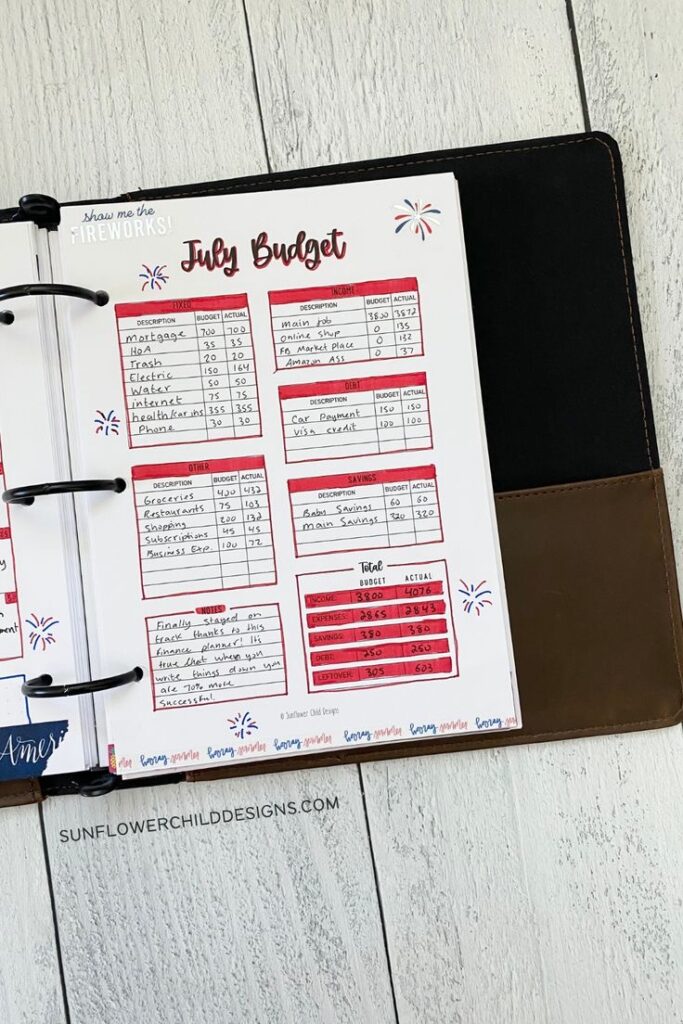 show me the
FIREWORKS!
July Budget
FIXED
DESCRIPTION BUDGET ACTUAL
Mortgage 700 700
HOA 35 35
Trash 20 20
Electric 150 164
Water 50 50
internet 75 75
health/car ins 355 355
Phone 30 30
INCOME
DESCRIPTION BUDGET ACTUAL
Main job 3800 3872
Online Shop 0 135
FB Market Place 0 132
Amazon Ass 0 37
DEBT
DESCRIPTION BUDGET ACTUAL
Car Payment 150 150
Visa credit 100 100
OTHER
DESCRIPTION BUDGET ACTUAL
Groceries 420 432
Restaurants 75 103
Shopping 200 132
Subscriptions 45 45
Business Exp. 100 72
SAVINGS
DESCRIPTION BUDGET ACTUAL
Baby Savings 60 60
Main Savings 320 320
NOTES
Finally stayed on
track thanks to this
finance planner! It's
true that when you
write things down you
are 70% more
successful.
Total
BUDGET ACTUAL
INCOME: 3800 4076
EXPENSES: 2865 2843
SAVINGS: 380 380
DEBT: 250 250
LEFTOVER: 305 603
© Sunflower Child Designs
hooray summer hooray summer hooray summer hooray summer hooray
Ameri
SUNFLOWERCHILDDESIGNS.COM